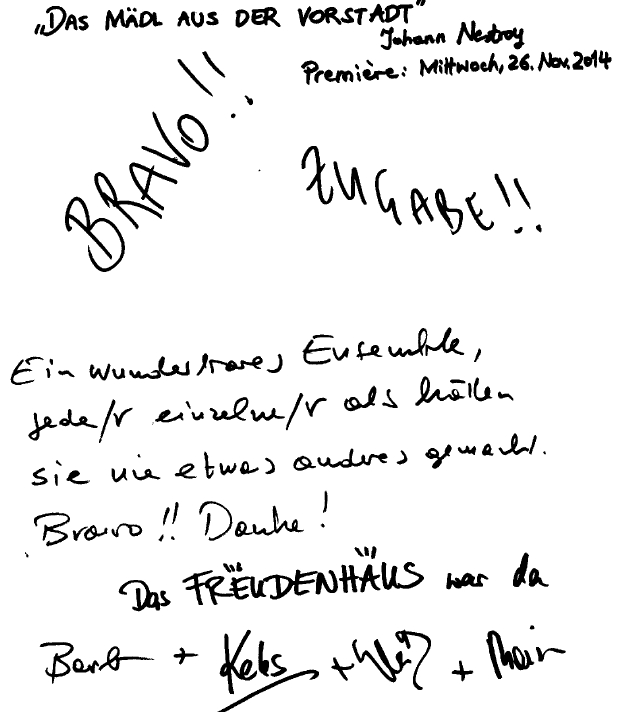 „DAS MÄDL AUS DER VORSTADT"
Johann Nestroy
Première: Mittwoch, 26. Nov. 2014
BRAVO!!
ZUGABE!!
Ein wunderbares Ensemble,
jede/r einzelne/r als hätten
sie nie etwas anderes gemacht.
Bravo!! Danke!
Das FREUDENHAUS war da
+ Keks + +